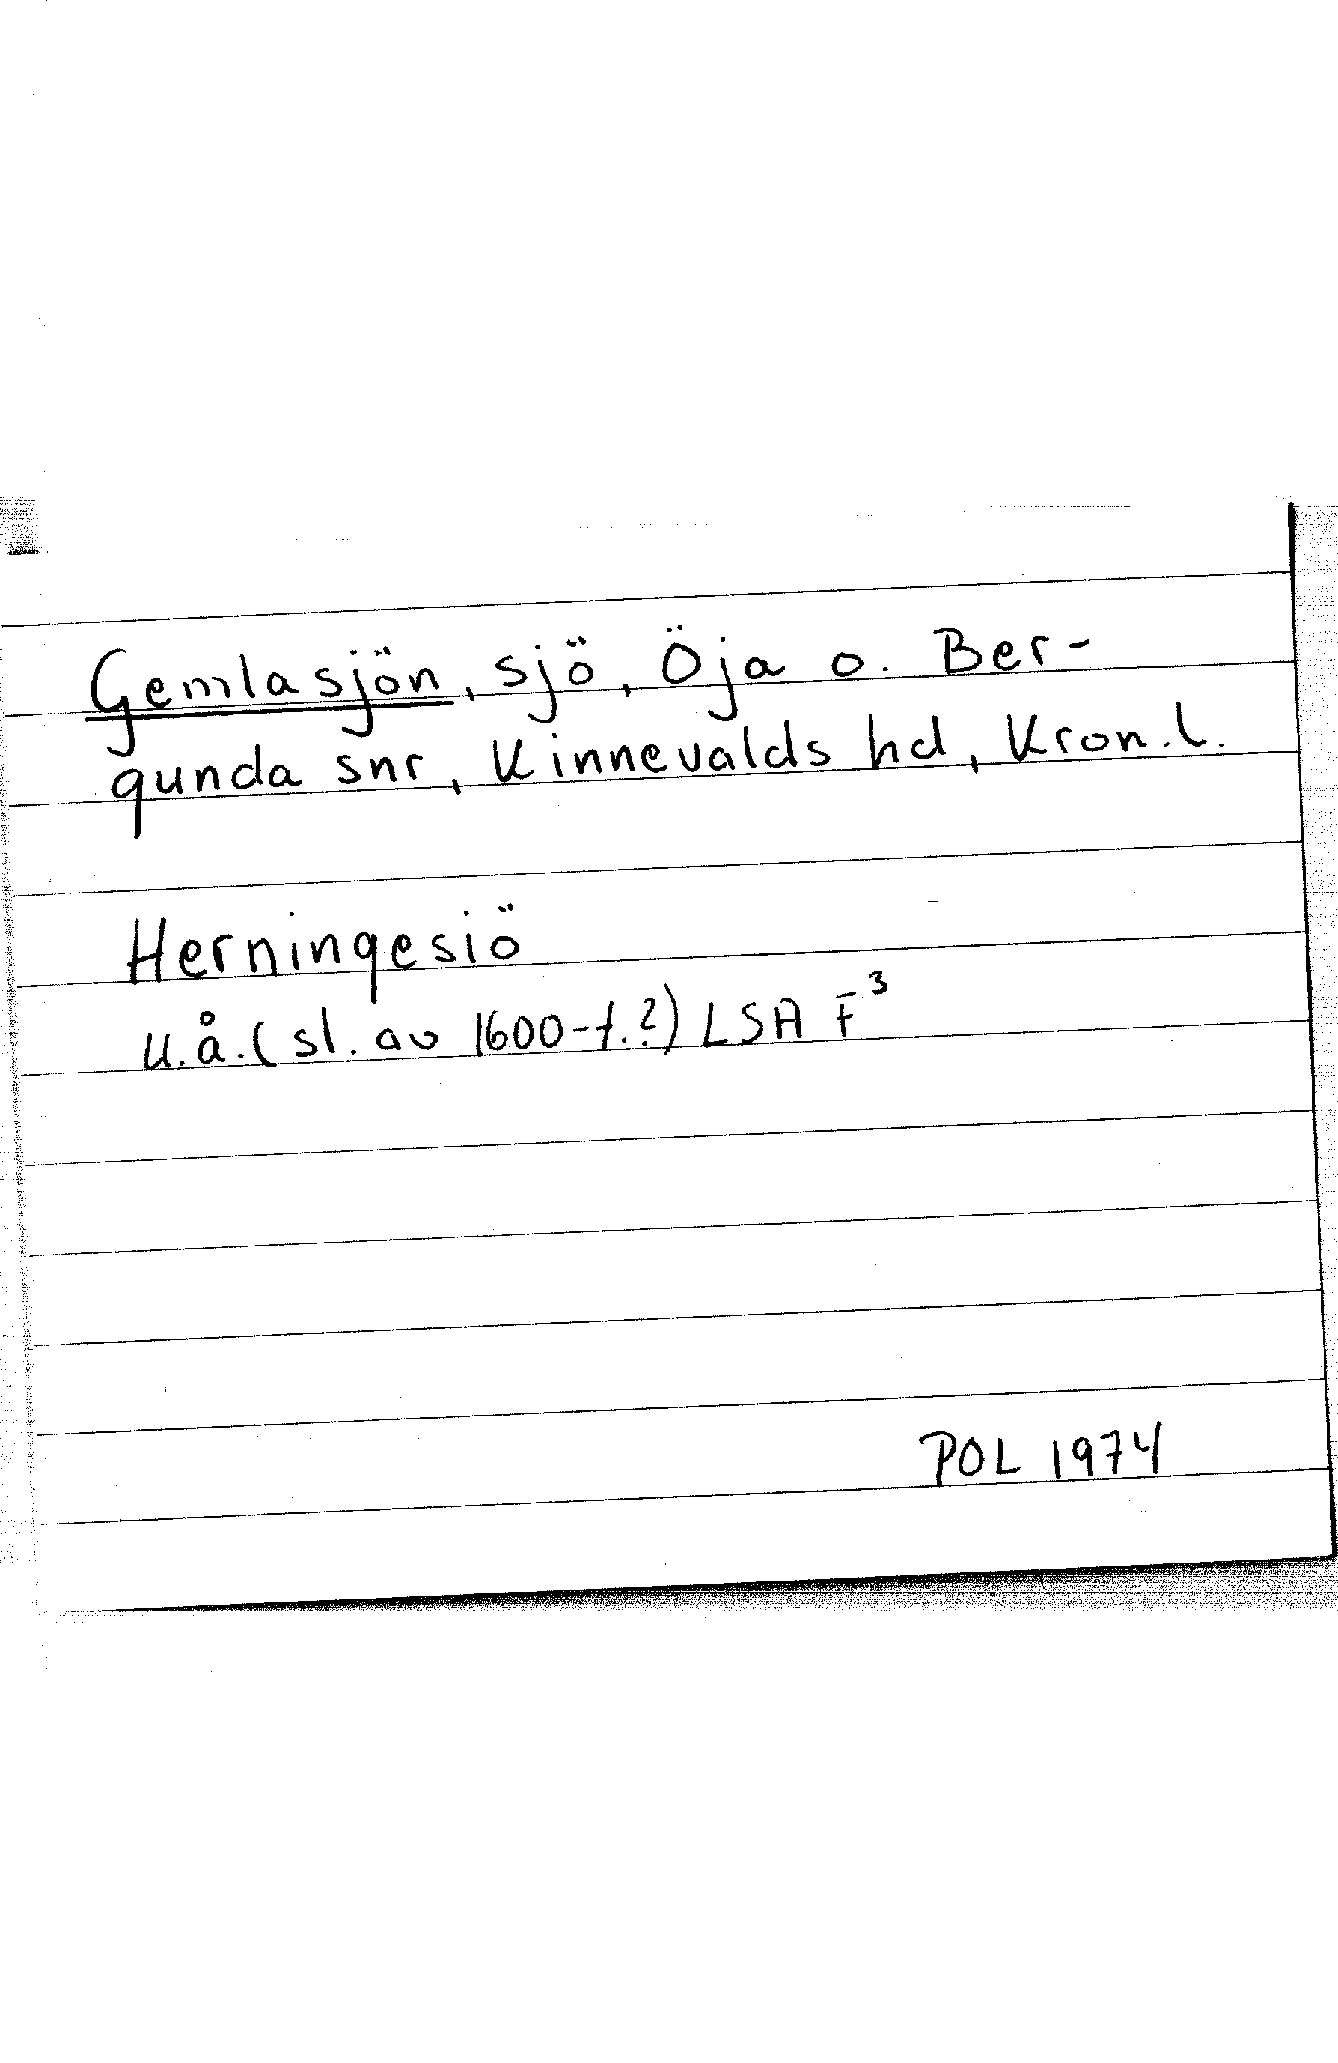 Gemlasjön, sjö, Öja o. Ber-
gunda snr, Kinnevalds hd, Kron.l.
Herningesiö
u.å. (sl. av 1600-t.?) LSA F³
POL 1974